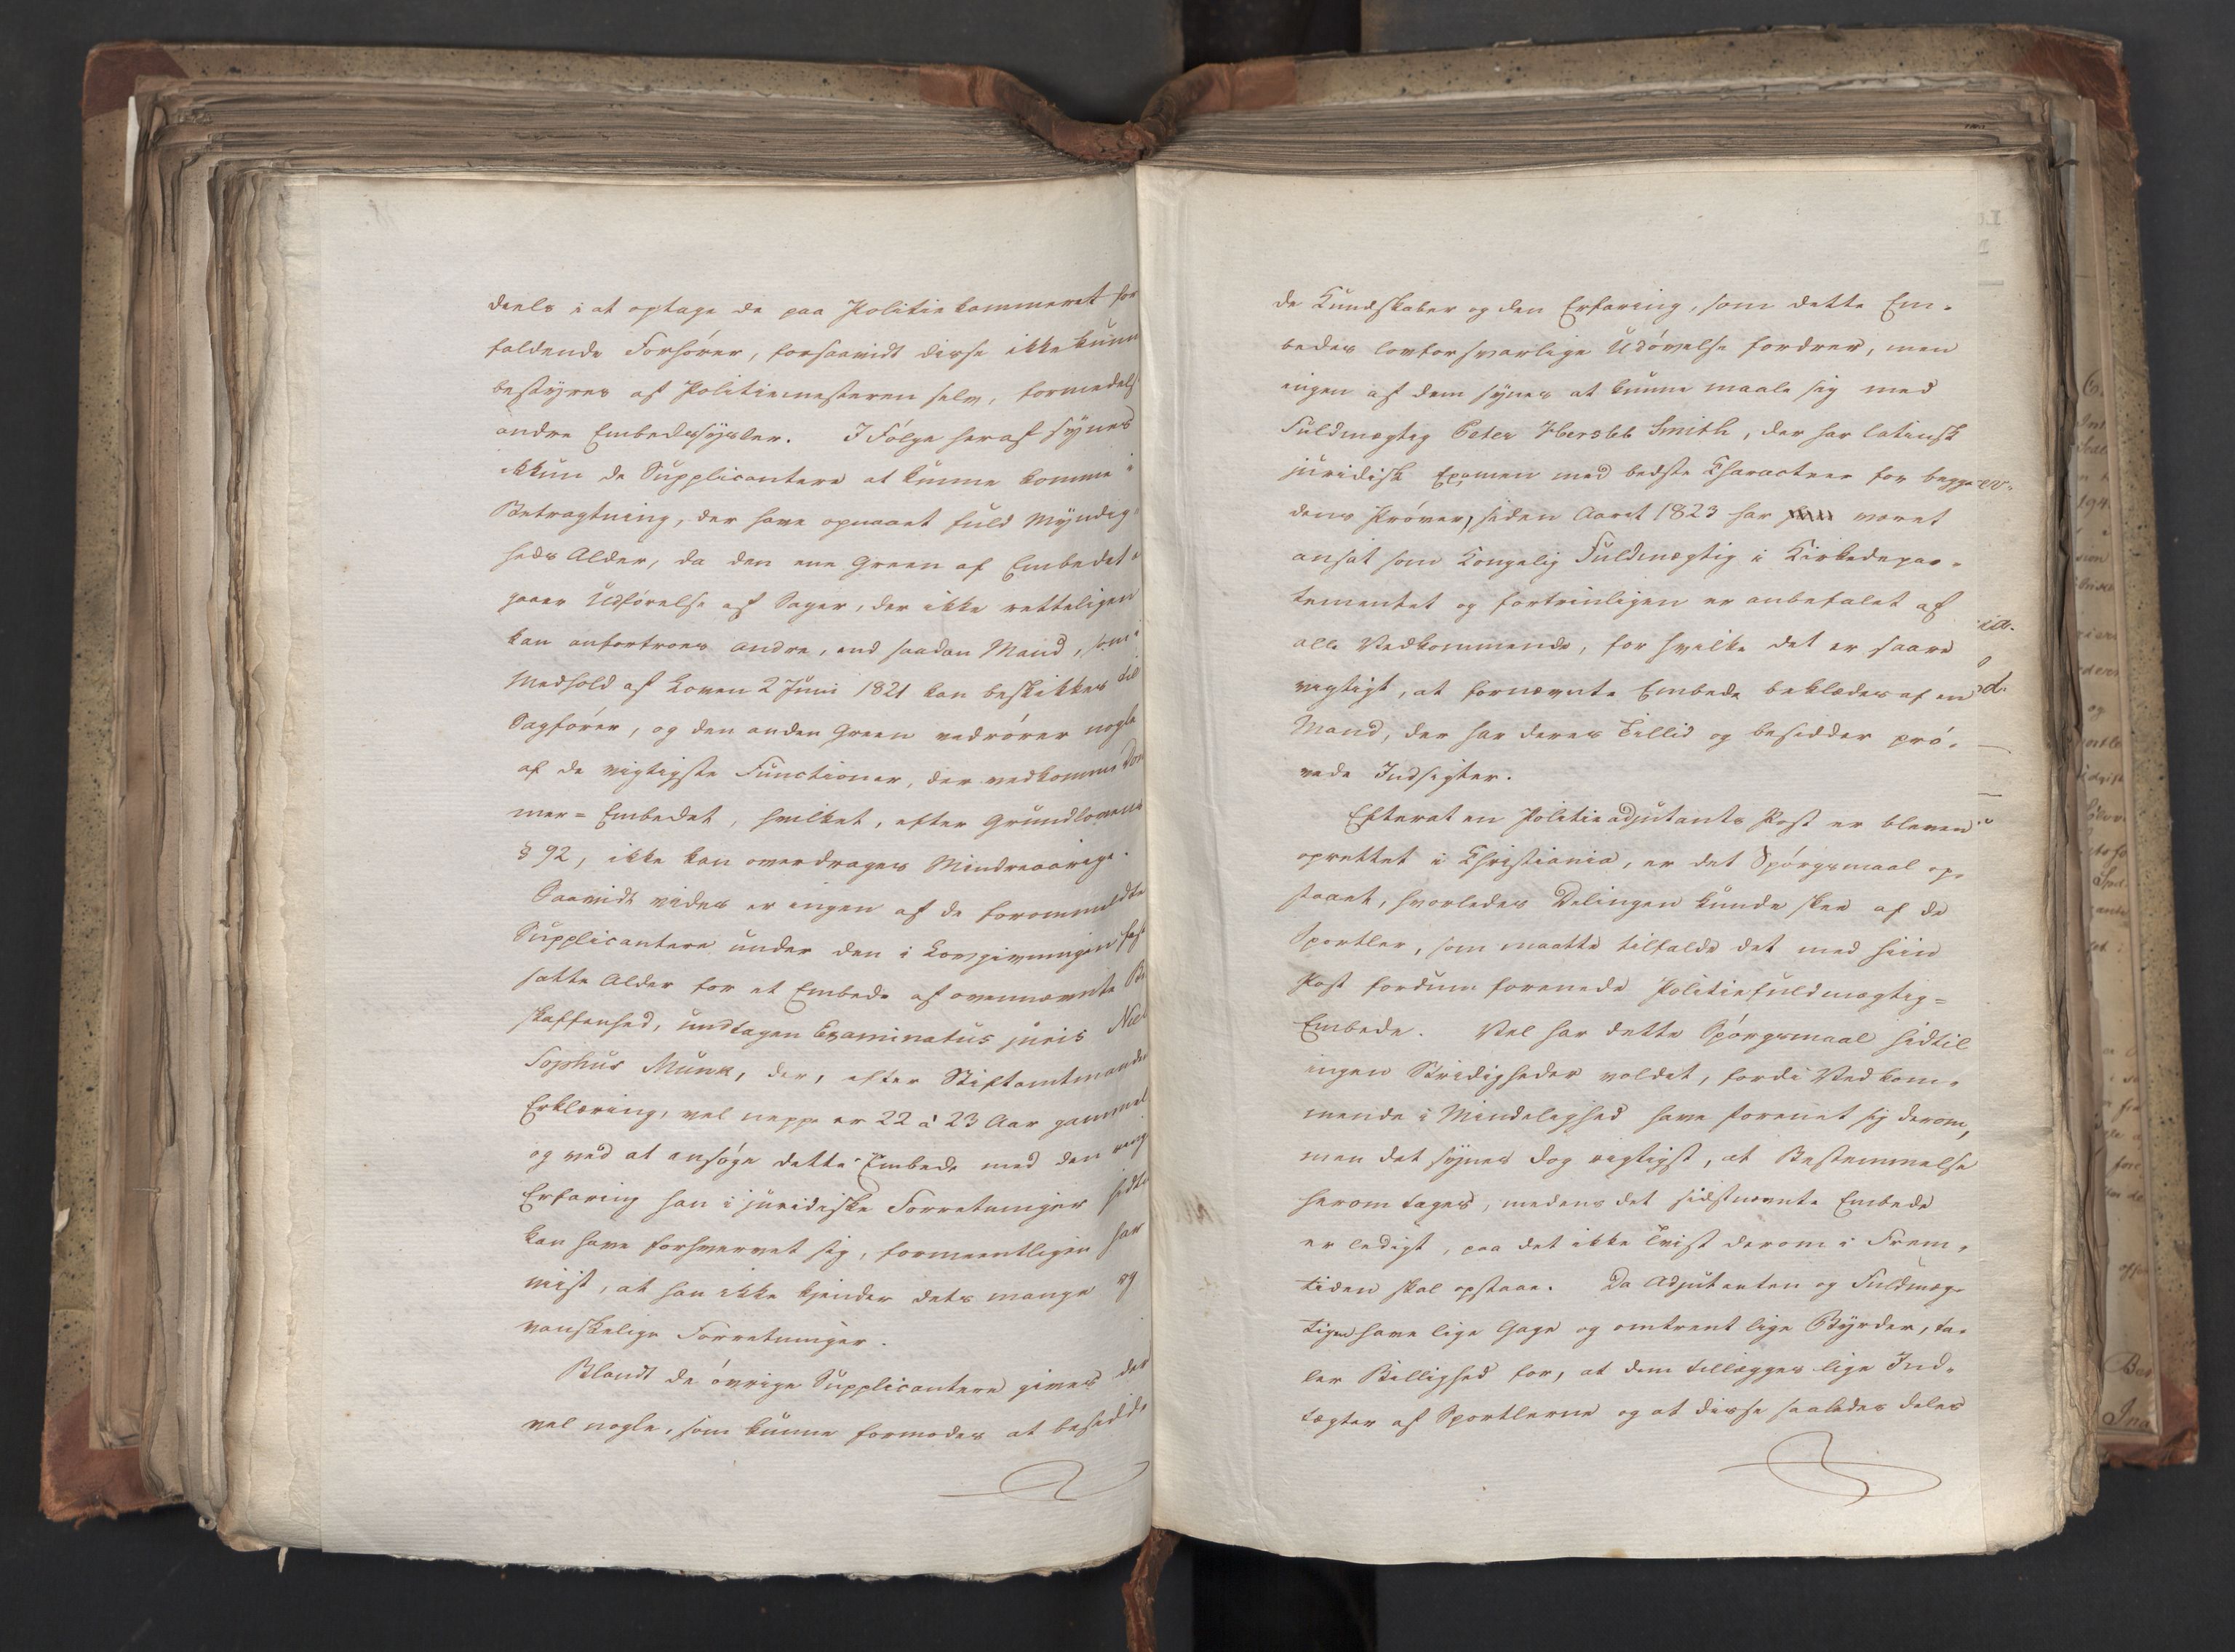 deels i at optage de paa Politiekammeret for
faldende Forhører, forsaavidt disse ikke kunne
bestyres af Politiemesteren selv, formedelst
andre Embedssysler. I Følge heraf synes
ikkun de Supplicantere at kunne komme i
Betragtning, der have opnaaet fuld Myndig-
heds Alder, da den ene Green af Embedet
gaaer Udførelse af Sager, der ikke retteligen
kan anfortroes andre, end saadan Mand, som i
Medhold af Loven 2 Juni 1821 kan beskikkes til
Sagfører, og den anden Green vedrører nogle
af de vigtigste Functioner, der vedkomme Dom
mer-Embedet, hvilket, efter Grundlovens
§ 92, ikke kan overdrages Mindreaarige.
Saavidt vides er ingen af de forommeldte
Supplicantere under den i Lovgivningen fast
satte Alder for et Embede af ovennævnte Be
skaffenhed, undtagen Examinatus juris Niel
Sophus Munk, der, efter Stiftamtmanden
Erklæring, vel neppe er 22 à 23 Aar gammel
og ved at ansøge dette Embede med den ringe
Erfaring han i juridiske Forretninger hidtil
kan have forhvervet sig, formeentligen har
viist, at han ikke kjender dets mange og
vanskelige Forretninger.
Blandt de øvrige Supplicantere gives der
vel nogle, som kunne formodes at besidde
de Kundskaber og den Erfaring, som dette Em-
bedes lovforsvarlige Udøvelse fordrer, men
ingen af dem synes at kunne maale sig med
Fuldmægtig Peter Hersleb Smith, der har latinsk
juridisk Examen med bedste Characteer for begge
dens Prøver, siden Aaret 1823 har været
ansat som Kongelig Fuldmægtig i Kirkedepar-
tementet og fortrinligen er anbefalet af
alle Vedkommende, for hvilke det er saare
vigtigt, at fornævnte Embede beklædes af en
Mand, der har deres Tillid og besidder prø-
vede Indsigter.
Efterat en Politieadjutants Post er bleven
oprettet i Christiania, er det Spørgsmaal op-
staaet, hvorledes Delingen kunde skee af de
Sportler, som maatte tilfalde det med hiin
Post fordum forenede Politiefuldmægtig-
Embede. Vel har dette Spørgsmaal hidtil
ingen Stridigheder voldet, fordi Vedkom-
mende i Mindelighed have forenet sig derom,
men det synes dog rigtigst, at Bestemmelse
herom tages, medens det sidstnævnte Embede
er ledigt, paa det ikke Tvist derom i Frem-
tiden skal opstaae. Da Adjutanten og Fuldmæg-
tigen have lige Gage og omtrent lige Byrder, ta-
ler Billighed for, at dem tillægges lige Ind-
tægter af Sportlerne og at disse saaledes deles